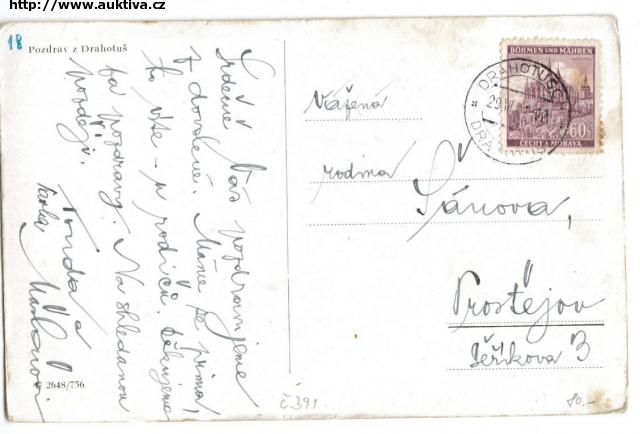 http://www.auktiva.cz
18
Pozdrav z Drahotuš
Srdečně Vás pozdravujeme
z dovolené. Máme se prima,
to víte – u rodičů. Děkujeme
za pozdravy. Na shledanou
později.
Tonda a
Jarka
2648/756
Vážená
rodina
Šánova,
Prostějov
Jeříkova 3
BÖHMEN UND MÄHREN
60
ČECHY A MORAVA
DRAHOTUSCH
č 391
80.-